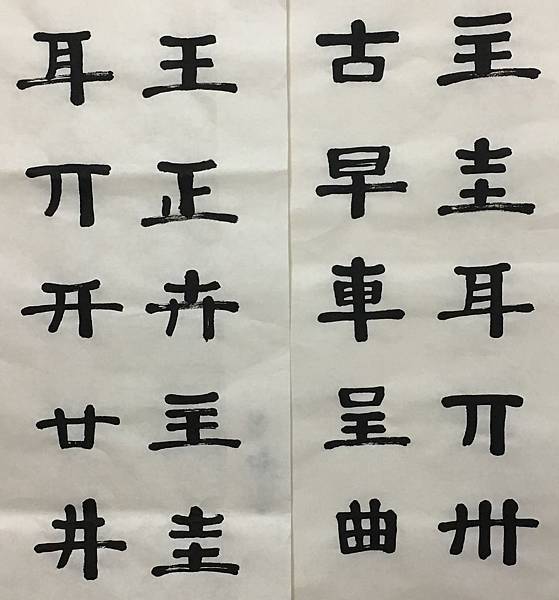 主圭耳丌卅
古早車呈曲
王正卉主圭
耳丌开廿井